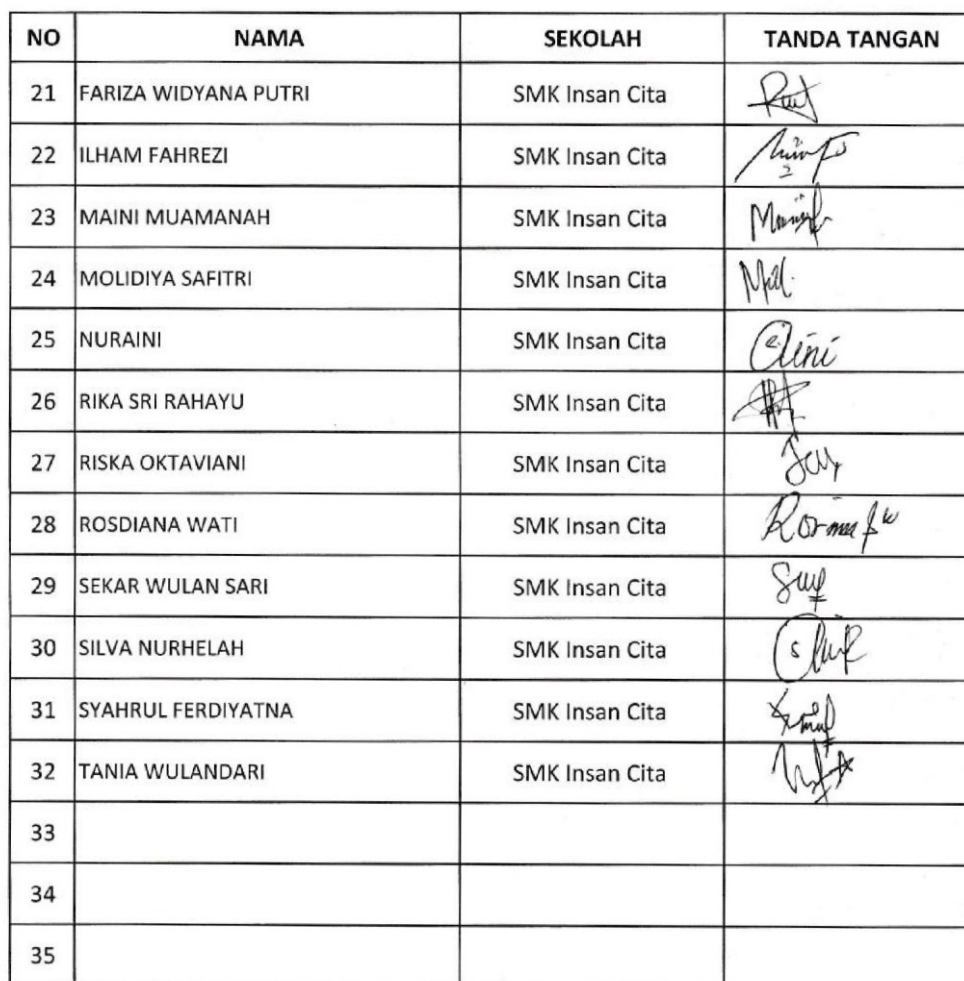 NO NAMA SEKOLAH TANDA TANGAN
21 FARIZA WIDYANA PUTRI SMK Insan Cita
22 ILHAM FAHREZI SMK Insan Cita
23 MAINI MUAMANAH SMK Insan Cita
24 MOLIDIYA SAFITRI SMK Insan Cita
25 NURAINI SMK Insan Cita
26 RIKA SRI RAHAYU SMK Insan Cita
27 RISKA OKTAVIANI SMK Insan Cita
28 ROSDIANA WATI SMK Insan Cita
29 SEKAR WULAN SARI SMK Insan Cita
30 SILVA NURHELAH SMK Insan Cita
31 SYAHRUL FERDIYATNA SMK Insan Cita
32 TANIA WULANDARI SMK Insan Cita
33
34
35